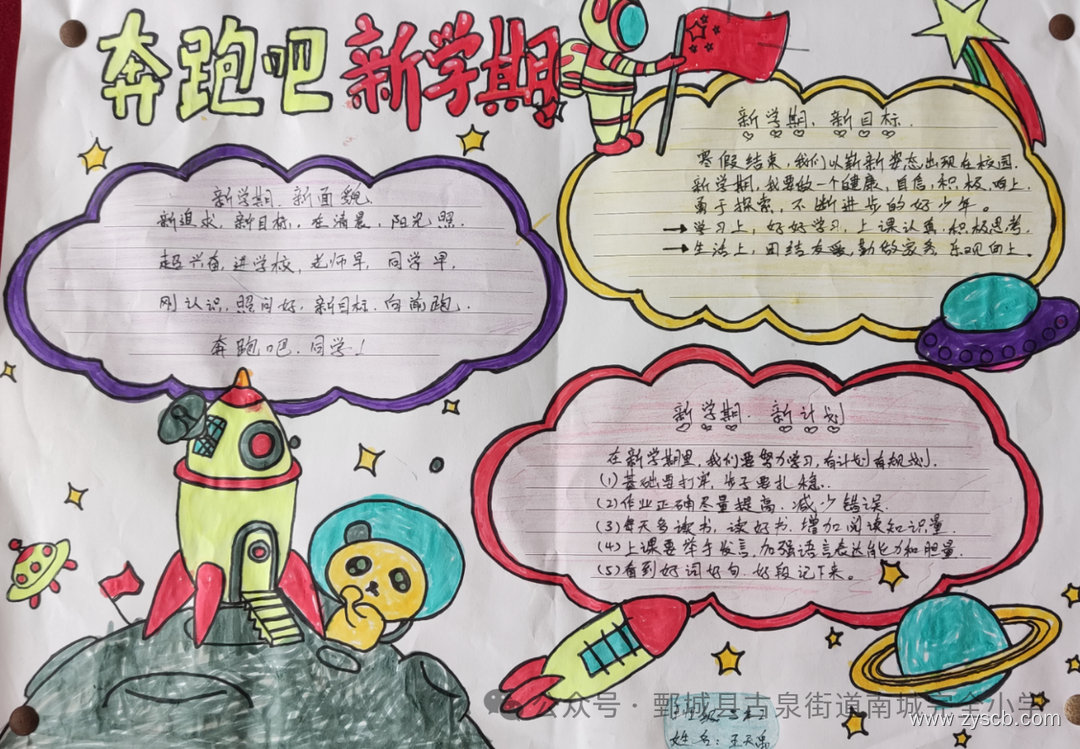 奔跑吧 新学期
新学期 新面貌
新追求，新目标，在清晨，阳光照.
起兴奋，进学校，老师早，同学早.
刚认识，照问好，新目标.向前跑.
奔跑吧.同学！
新学期、新目标.
寒假结束，我们以崭新姿态出现在校园.
新学期，我要做一个健康，自信，积极，向上.
勇于探索，不断进步的好少年。
→学习上，好好学习，上课认真，积极思考.
→生活上，团结友爱，勤做家务，乐观向上.
新学期.新计划
在新学期里，我们要努力学习，有计划有规划.
(1)基础要打牢，步子要扎稳.
(2)作业正确尽量提高.减少错误.
(3)每天多读书，读好书.增加阅读知识量.
(4)上课要举手发言.加强语言表达能力和胆量.
(5)看到好词好句.好段记下来。
公众号·鄄城县古泉街道南城完全小学
www.zyscb.com
姓名：王天